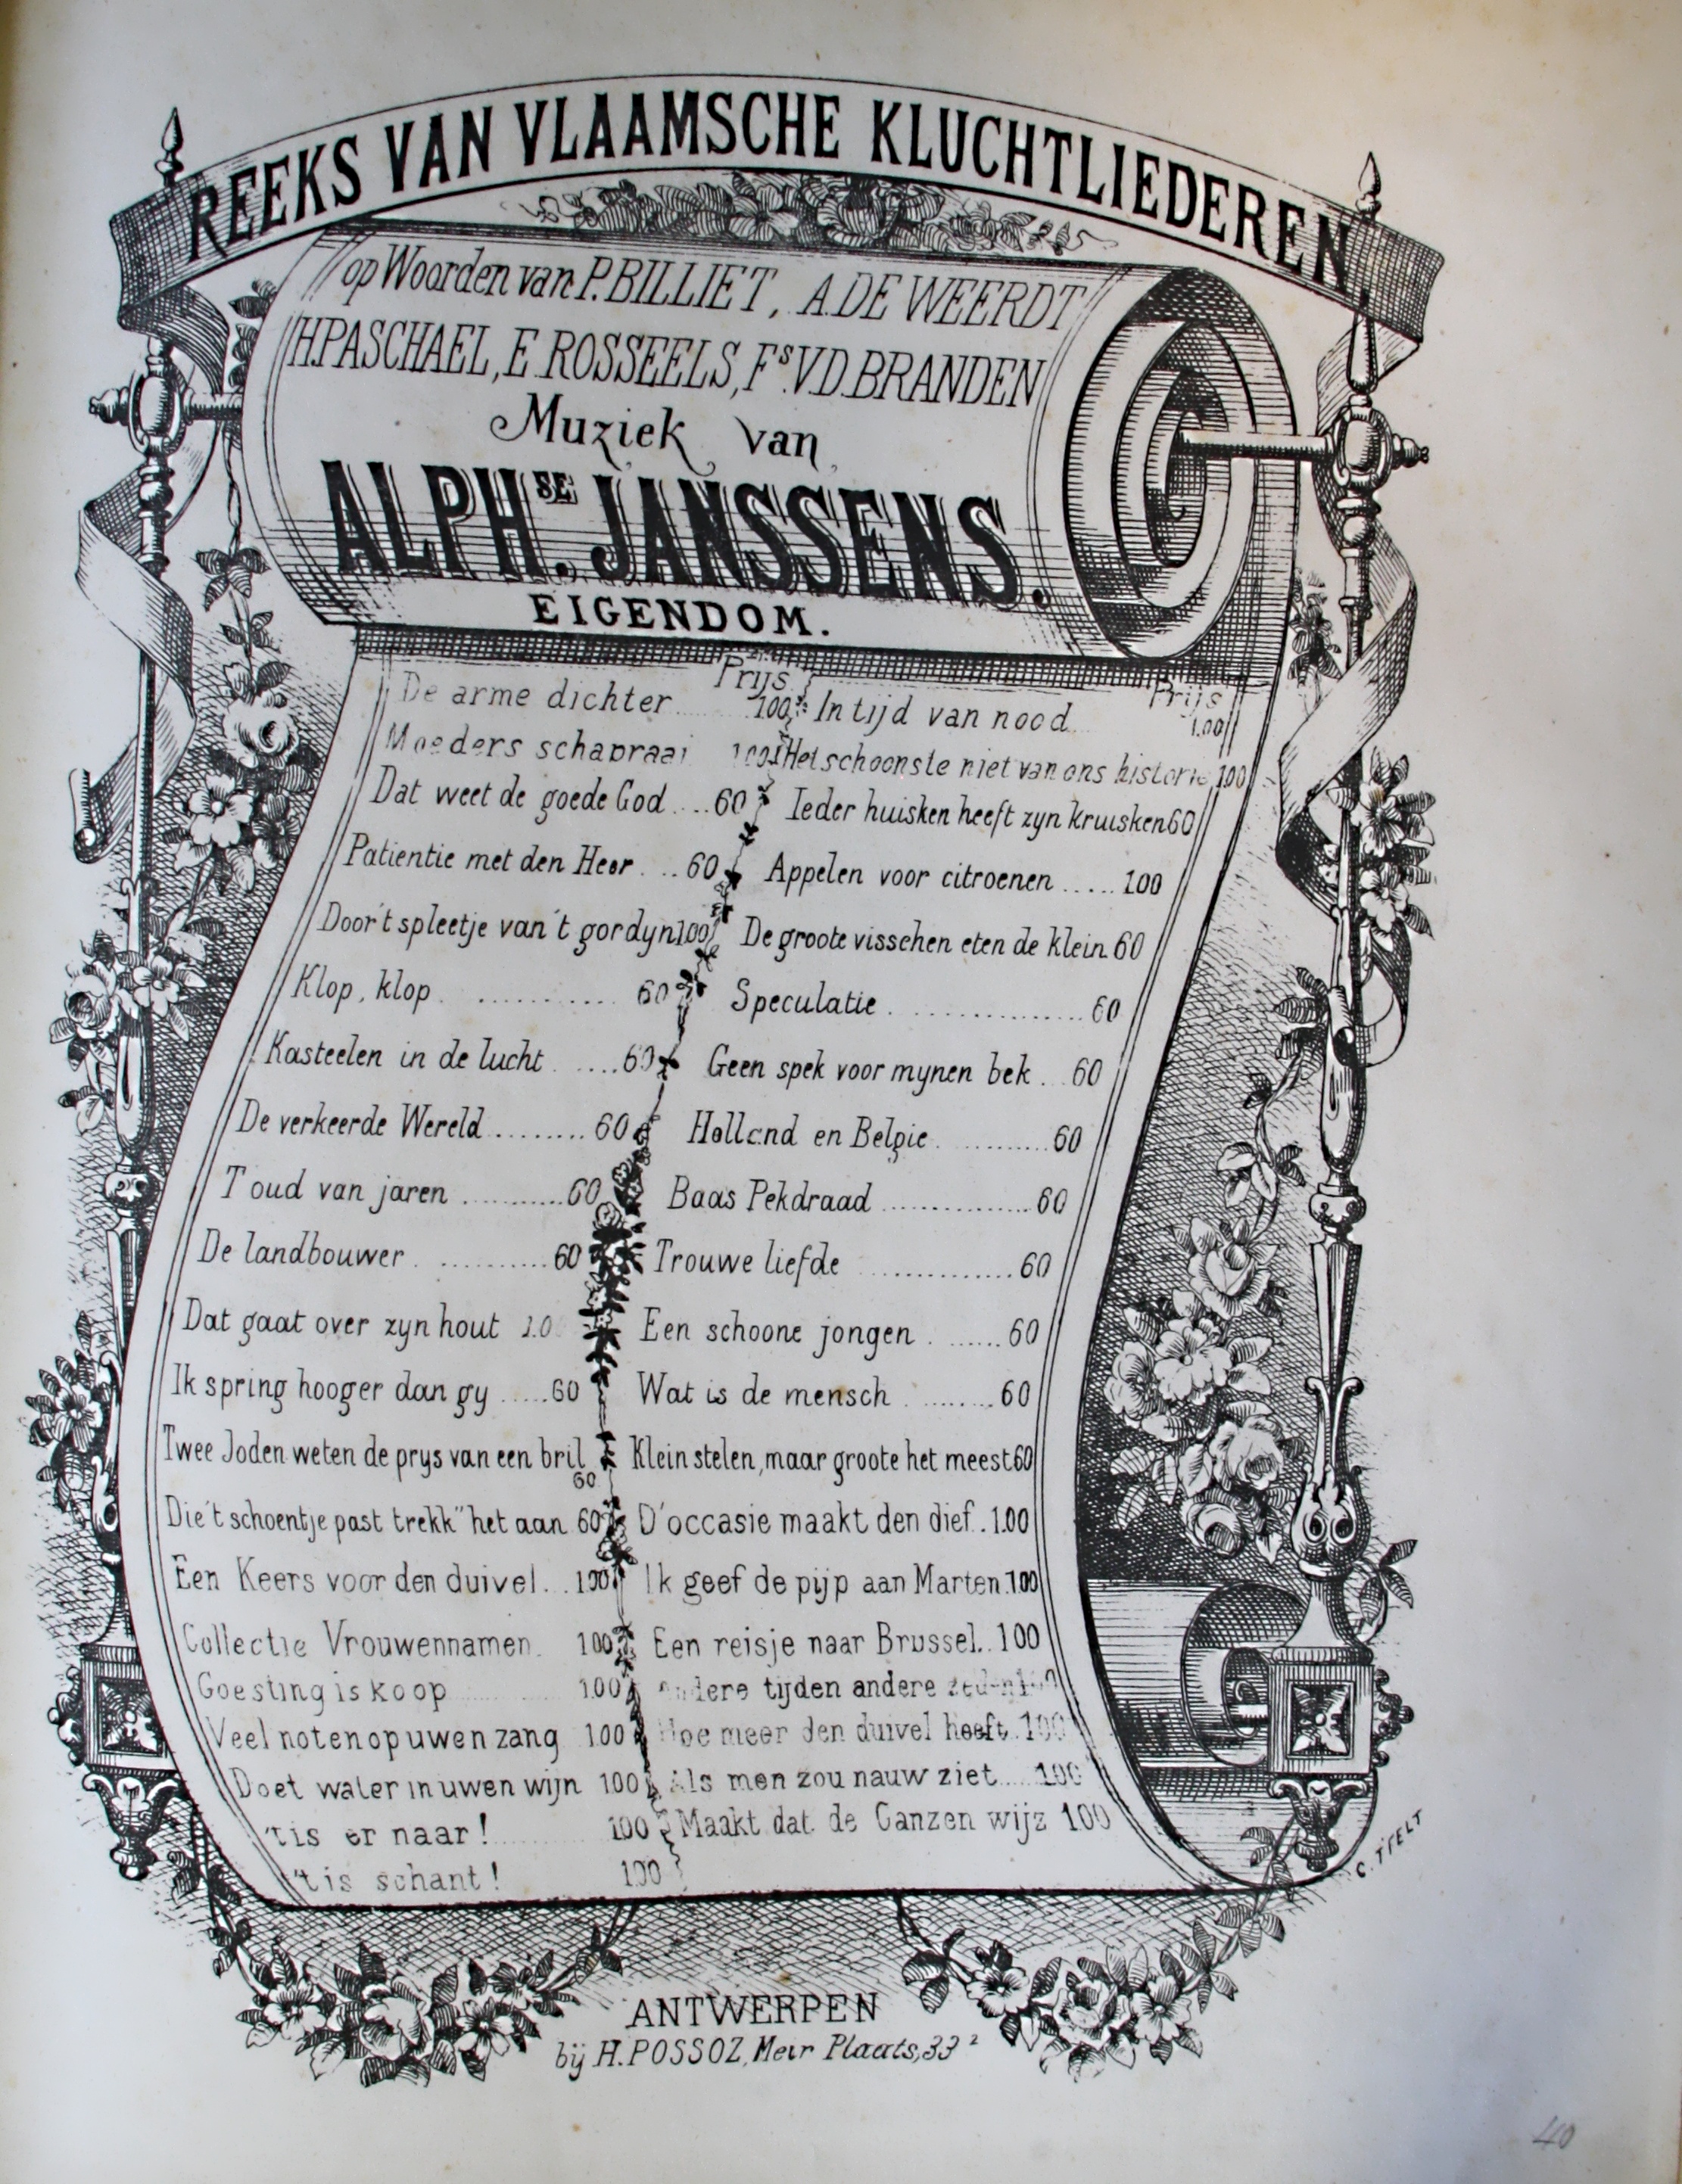 REEKS VAN VLAAMSCHE KLUCHTLIEDEREN.
op Woorden van P. BILLIET, A. DE WEERDT
H. PASCHAEL, E. ROSSEELS, Fs. V. D. BRANDEN
Muziek van
ALPHSE. JANSSENS.
EIGENDOM.
Prijs
De arme dichter 100
Moeders schapraai 100
Dat weet de goede God .... 60
Patientie met den Heer ... 60
Door't spleetje van 't gordyn 1.00
Klop, klop ............ 60
Kasteelen in de lucht ..... 60
De verkeerde Wereld ......... 60
T oud van jaren ........... 60
De landbouwer ........... 60
Dat gaat over zyn hout
Ik spring hooger dan gy ..... 60
Twee Joden weten de prys van een bril
60
Die 't schoentje past trekk" het aan 60
Een Keers voor den duivel ... 100
Collectie Vrouwennamen 100
Goesting is koop 1.00
Veel noten op uwen zang 1.00
Doet water in uwen wijn 100
'tis er naar! 100
'tis schant! 100
Prijs
In tijd van nood 1.00
Het schoonste niet van ons historie 100
Ieder huisken heeft zyn kruisken 60
Appelen voor citroenen ..... 1.00
De groote visschen eten de klein 60
Speculatie ................ 60
Geen spek voor mynen bek ... 60
Holland en Belgie .......... 60
Baas Pekdraad ............... 60
Trouwe liefde .............. 60
Een schoone jongen ....... 60
Wat is de mensch ........ 60
Klein stelen, maar groote het meest 60
D'occasie maakt den dief .. 1.00
Ik geef de pijp aan Marten 1.00
Een reisje naar Brussel .. 100
andere tijden andere
Hoe meer den duivel heeft .. 100
Als men zou nauw ziet ..... 100
Maakt dat de Ganzen wijz 100
ANTWERPEN
bij H. POSSOZ, Meir Plaats, 33 2
40